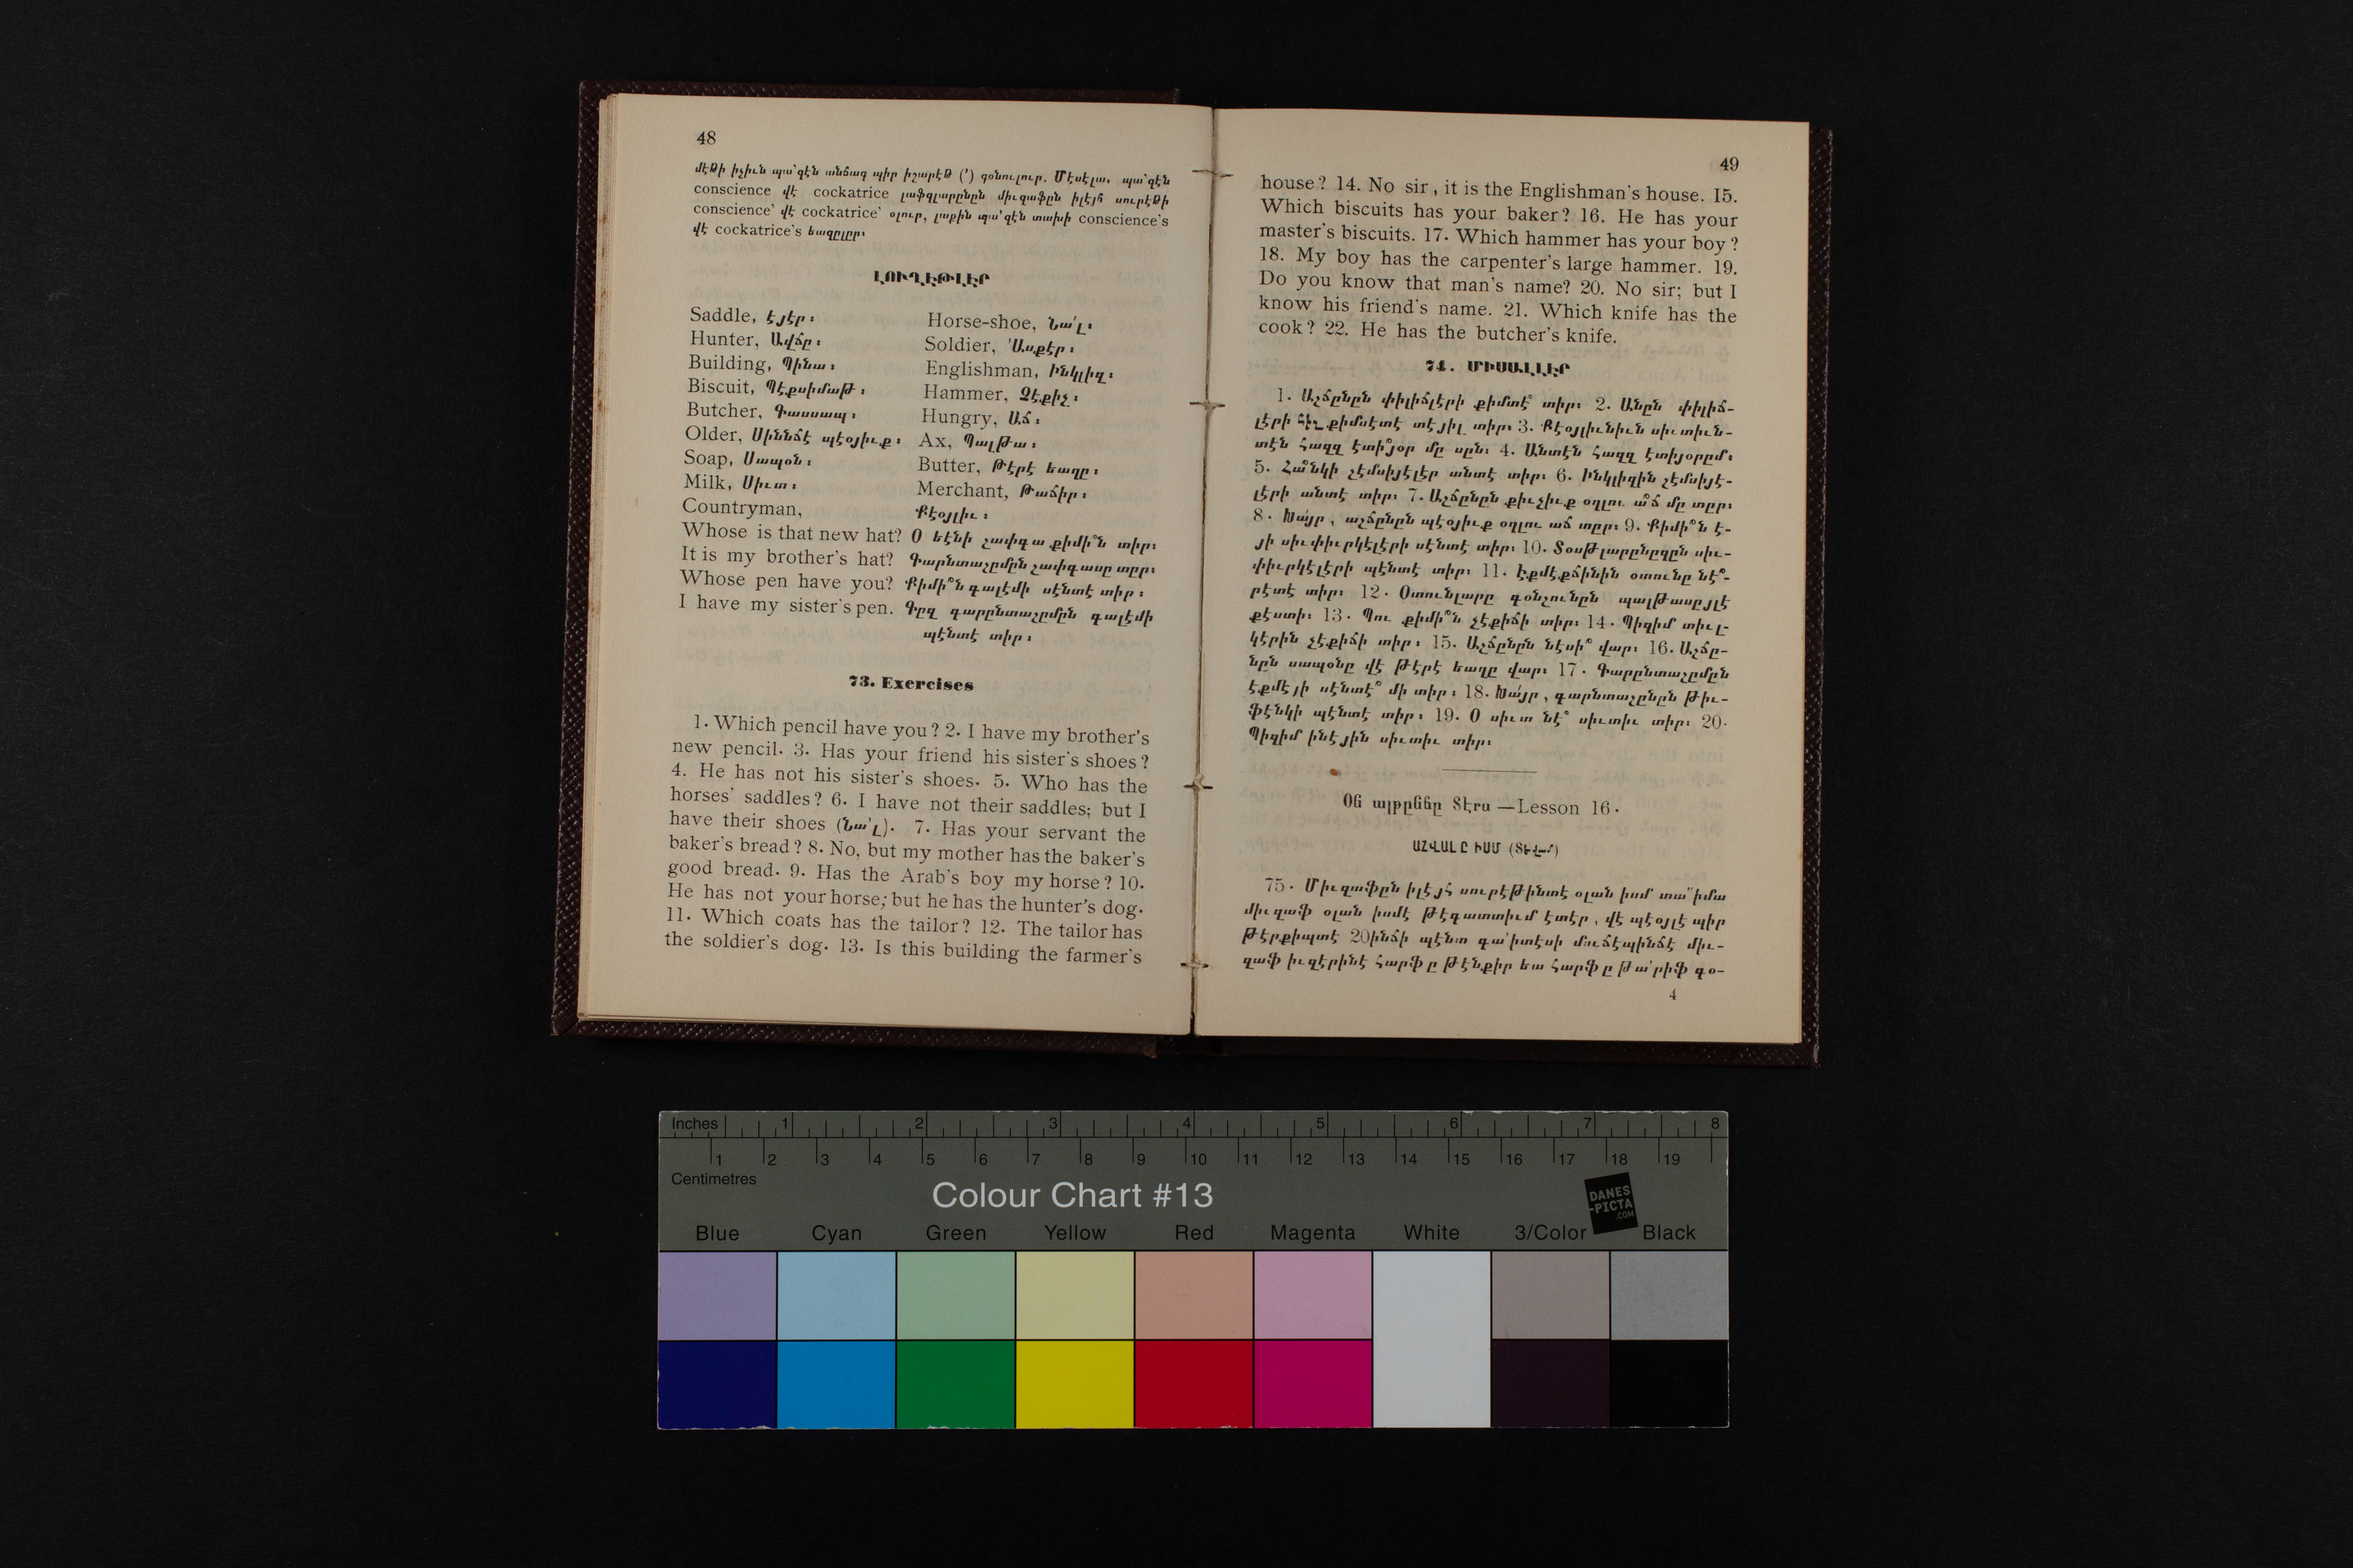 48
մէթի իչիւն պա՛զէն անճագ պիր իշարէթ (’) գօնուլուր. Մէսէլա, պա՛զէն
conscience վէ cockatrice լաֆզլարընըն միւզաֆըն իլէյհ սուրէթի
conscience’ վէ cockatrice’ օլուր, լաքին պա՛զէն տախի conscience’s
վէ cockatrice’s եազըլըր։
ԼՈՒՂԷԹԼԷՐ
Saddle, էյէր։ Horse-shoe, Նա՛լ։
Hunter, Ավճը։ Soldier, ՛Ասքէր։
Building, Պինա։ Englishman, Ինկլիզ։
Biscuit, Պէքսիմաթ։ Hammer, Չէքիչ։
Butcher, Գասսապ։ Hungry, Աճ։
Older, Սիննճէ պէօյիւք։ Ax, Պալթա։
Soap, Սապօն։ Butter, Թէրէ եաղը։
Milk, Սիւտ։ Merchant, Թաճիր։
Countryman, Քէօյլիւ։
Whose is that new hat? Օ եէնի շափգա քիմի՞ն տիր։
It is my brother’s hat? Գարնտաշըմըն շափգասը տըր։
Whose pen have you? Քիմի՞ն գալէմի սէնտէ տիր։
I have my sister’s pen. Գըզ գարընտաշըմըն գալէմի
պէնտէ տիր։
73. Exercises
1. Which pencil have you? 2. I have my brother’s
new pencil. 3. Has your friend his sister’s shoes?
4. He has not his sister’s shoes. 5. Who has the
horses’ saddles? 6. I have not their saddles; but I
have their shoes (նա՛լ). 7. Has your servant the
baker’s bread? 8. No, but my mother has the baker’s
good bread. 9. Has the Arab’s boy my horse? 10.
He has not your horse; but he has the hunter’s dog.
11. Which coats has the tailor? 12. The tailor has
the soldier’s dog. 13. Is this building the farmer’s
49
house? 14. No sir, it is the Englishman’s house. I5.
Which biscuits has your baker? 16. He has your
master’s biscuits. 17. Which hammer has your boy?
18. My boy has the carpenter’s large hammer. 19.
Do you know that man’s name? 20. No sir; but I
know his friend’s name. 21. Which knife has the
cook? 22. He has the butcher’s knife.
74. ՄԻՍԱԼԼԷՐ
1. Աշճընըն փիլիճլէրի քիմտէ՞ տիր։ 2. Անըն փիլիճ-
լէրի հիչ քիմսէտէ տէյիլ տիր։ 3. Քէօյլիւնիւն սիւտիւն-
տէն հազզ էտի՞յօր մը սըն։ 4. Անտէն հազզ էտիյօրըմ։
5. Հա՞նկի չէմսիյէլէր անտէ տիր։ 6. Ինկլիզին չէմսիյէ-
լէրի անտէ տիր։ 7. Աշճընըն քիւչիւք օղլու ա՞ճ մը տըր։
8. Խայր, աշճընըն պէօյիւք օղլու աճ տըր։ 9. Քիմի՞ն է-
յի սիւփիւրկէլէրի սէնտէ տիր։ 10. Տօսթլարընըզըն սիւ-
փիւրկէլէրի պէնտէ տիր։ 11. Էքմէքճինին օտունը նէ՞-
րէտէ տիր։ 12. Օտունլարը գօնշունըն պալթասըյլէ
քէստի։ 13. Պու քիմի՞ն չէքիճի տիր։ 14. Պիզիմ տիւլ-
կէրին չէքիճի տիր։ 15. Աշճընըն նէսի՞ վար։ 16. Աշճը-
նըն սապօնը վէ թէրէ եաղը վար։ 17. Գարընտաշըմըն
էքմէյի սէնտէ՞ մի տիր։ 18. Խայր, գարնտաշընըն թիւ-
ֆէնկի պէնտէ տիր։ 19. Օ սիւտ նէ՞ սիւտիւ տիր։ 20.
Պիզիմ ինէյին սիւտիւ տիր։
Օն ալթընճը Տէրս —Lesson 16.
ԱՀՎԱԼԸ ԻՍՄ (Տէվամ)
75. Միւզաֆըն իլէյհ սուրէթինտէ օլան իսմ տա՛՛իմա
միւզաֆ օլան իսմէ թէգատտիւմ էտէր, վէ պէօյլէ պիր
թէրքիպտէ 20ինճի պէնտ գա՛իտէսի մուճէպինճէ միւ-
զաֆ իւզէրինէ հարֆը թէնքիր եա հարֆը թա՛րիֆ գօ-
4
Inches 1 2 3 4 5 6 7 8
1 2 3 4 5 6 7 8 9 10 11 12 13 14 15 16 17 18 19
Centimetres
Colour Chart #13
DANES
-PICTA
.COM
Blue Cyan Green Yellow Red Magenta White 3/Color Black